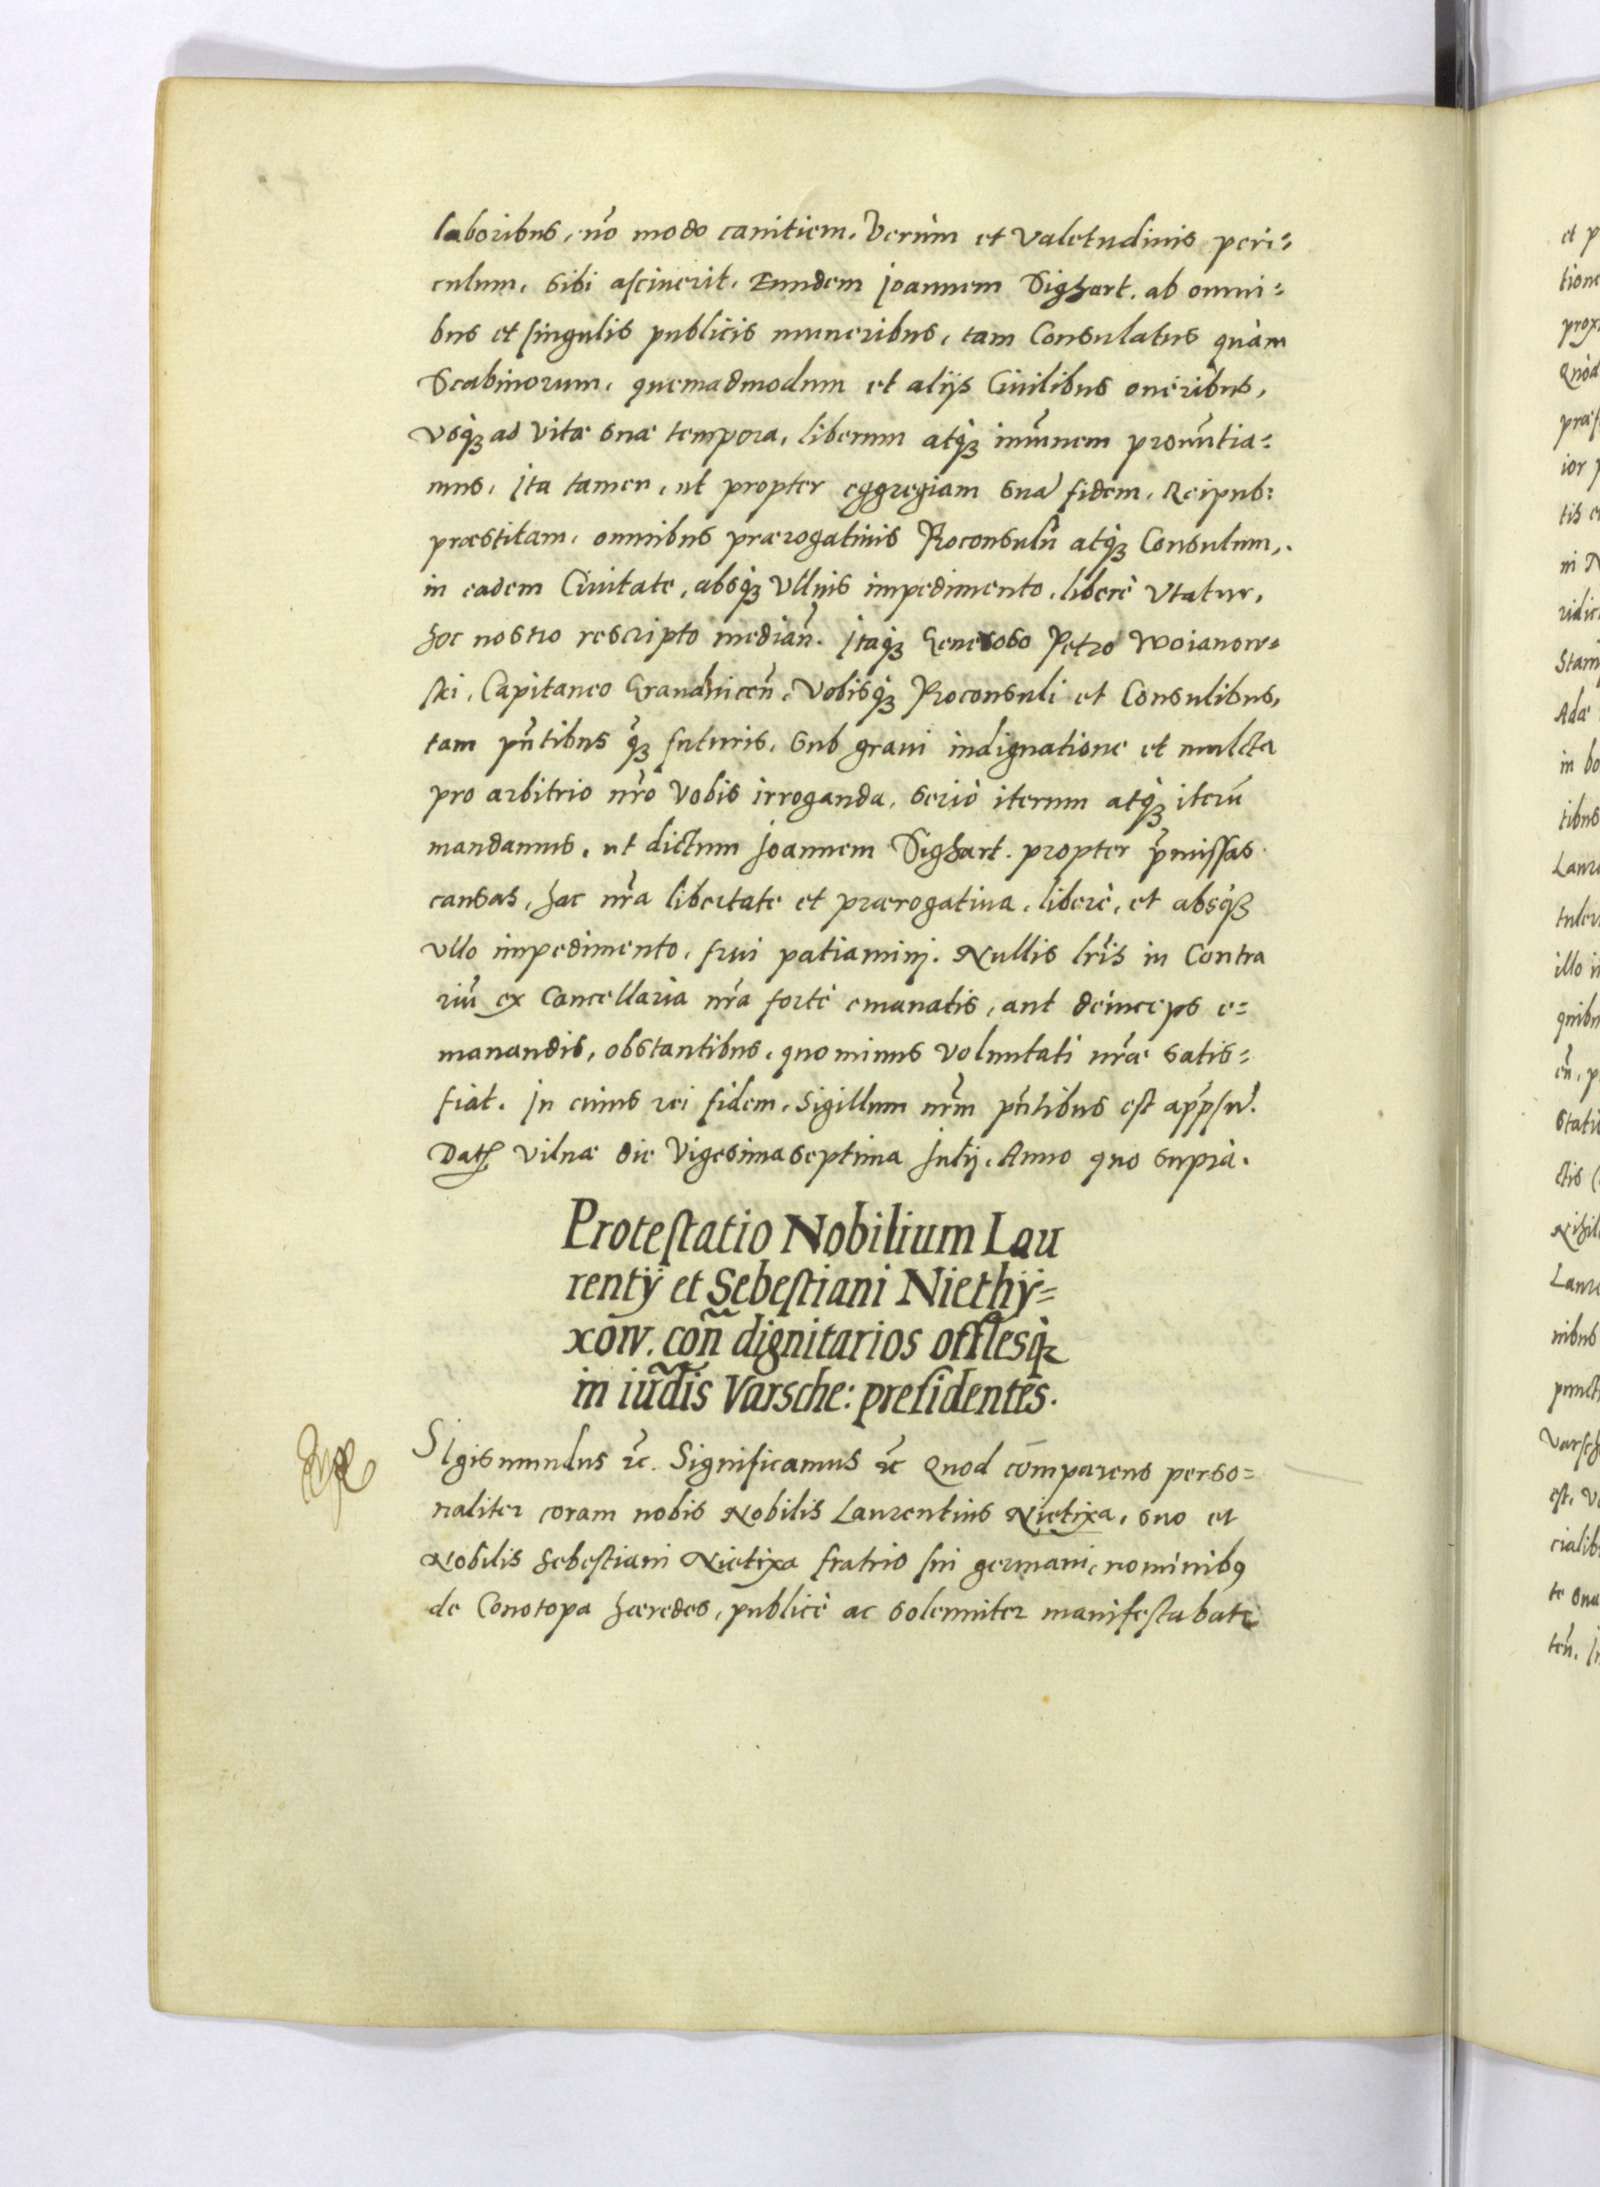 laboribus, nõ modo canitiem, Verùm et Valetudinis peri=
culum, sibi asciuerit. Eundem Joannem Sighart. ab omni=
bus et singulis publicis muneribus, tam Consulatus quàm
Scabinorum, quemadmodum et alijs Ciuilibus oneribus,
Vsq̃ ad Vitæ suæ tempora, liberum atq̃ imũnem pronũtia=
mus. Ita tamen, ut propter eggregiam suã fidem, Reipub:
præstitam, omnibus prærogatiuis Proconsulũ atq̃ Consulum,
in eadem Ciuitate, absq̃ Vllius impedimento, liberè Vtatur,
hoc nostro rescripto mediañ. Itaq̃ Generoso Petro Woianow=
ski, Capitaneo Graudnicen̄, Vobisq̃ Proconsuli et Consulibus,
tam pñtibus q̃ futuris, sub graui indignatione et mulcta
pro arbitrio nr̃o Vobis irroganda, seriò iterum atq̃ iterũ
mandamus, ut dictum Joannem Sighart. propter p̃missas
causas, hac nr̃a libertate et prærogatiua, liberè, et absq̃
Vllo impedimento, frui patiaminj. Nullis lr̃is in Contra
riũ ex Cancellaria nr̃a fortè emanatis, aut deinceps e=
manandis, obstantibus, quo minus Voluntati nr̃æ satis=
fiat. In cuius rei fidem, Sigillum nr̃m pñtibus est app̃sũ.
Dat̃ Vilnæ die Vigesima septima Julij. Anno quo suprà.
Protestatio Nobilium Lau
rentÿ et Sebestiani Niethÿ=
xow. con̄ dignitarios offlesq̃
in iud̃is Varsche: presidentes.
SIgismundus ꝛc̃. Significamus ꝛc̃ Quod comparens perso=
naliter coram nobis Nobilis Laurentius Nietixa, suo et
Nobilis Sebestiani Nietixa fratris sui germani, nominibꝰ
de Conotopa hæredes, publicè ac solenniter manifestabat